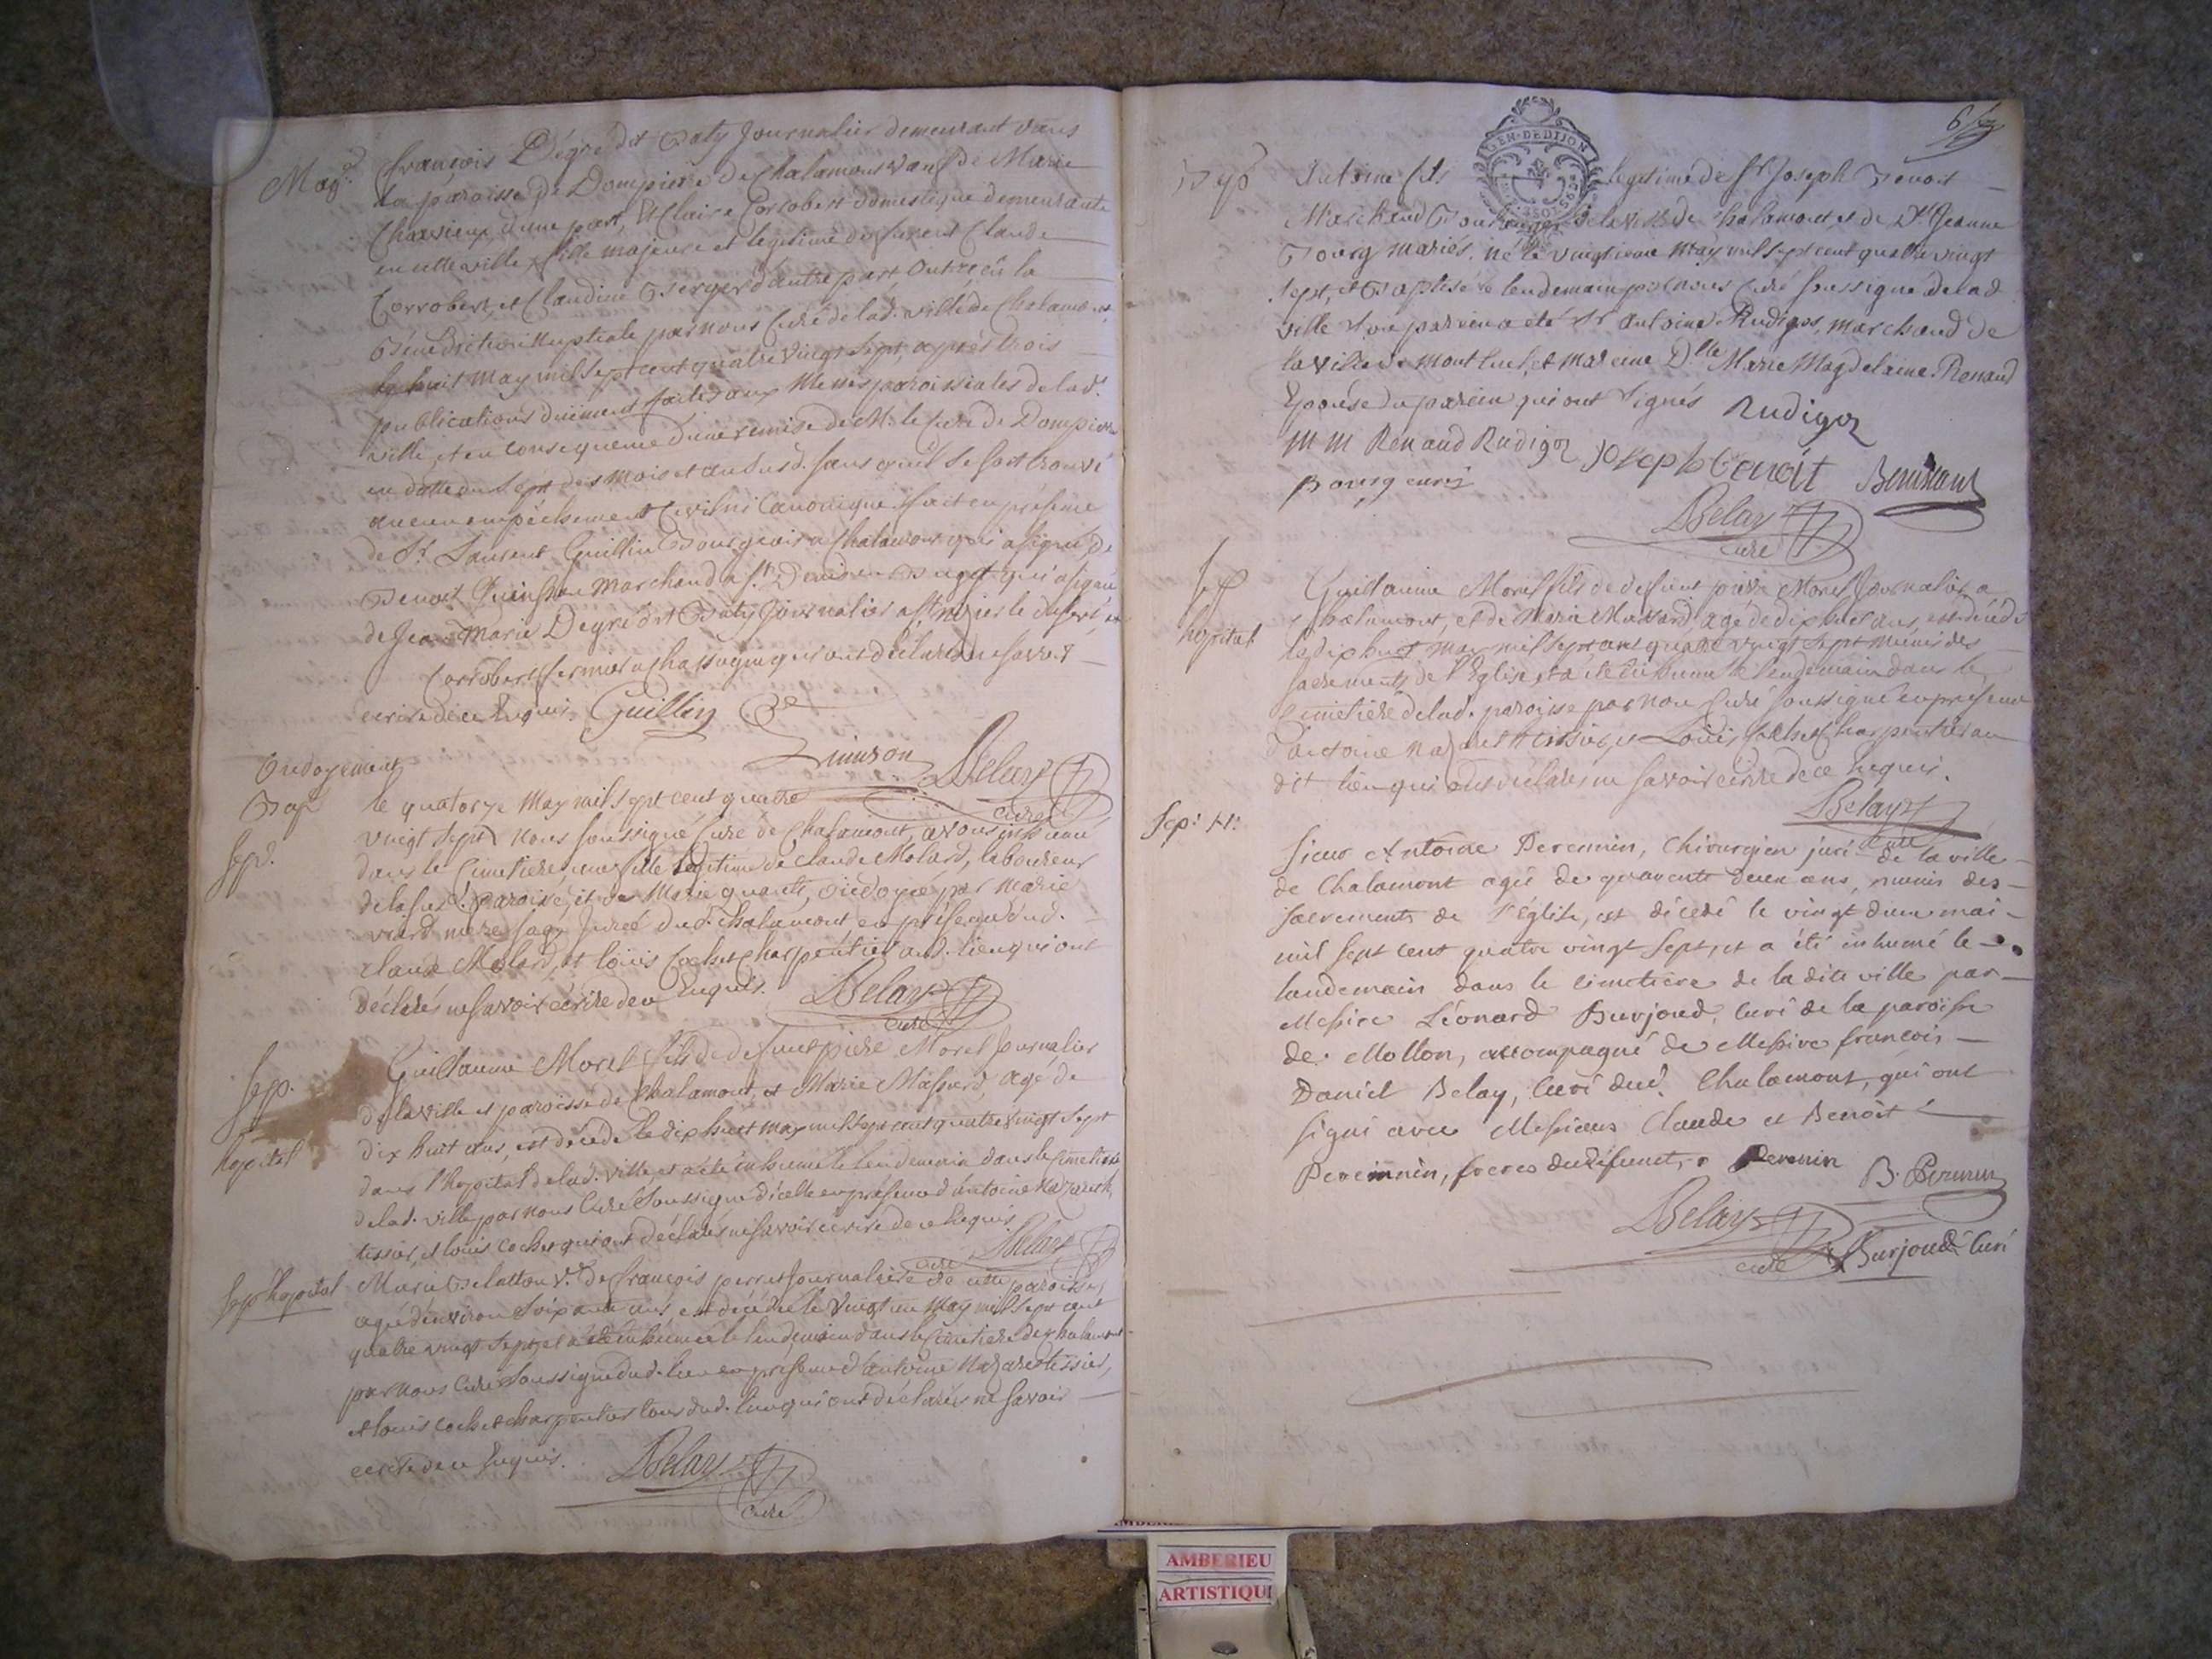 Mag.
françois Dégré dit Baty Journalier demeurant dans
la paroisse de Dompierre de Chalamont vauf de Marie
Charvieux d'une part, et Claire Corrobert domestique demeurante
en cette ville, fille majeure et legitime des furent Claude
Corrobert, et Claudine Berger d'autre part, ont reçu la
Bénédiction Nuptiale par nous Curé de lad. ville de Chalamont
le huit may mil sept cent quatre vingt sept, après trois
publications duëment faites aux Messes paroissiales de lad.
ville, et en consequence d'une remise de Mr. le Curé de Dompierre
en datte du sept des mois et an susd. sans qu'il se soit trouvé
aucun empêchement civil ni Canonique. fait en présence
de Sr. Laurent Guillin Bourgeois a Chalamont qui a signé, de
Benoit marchand a St. qui a signé
de Jean Marie Degré dit Baty Journalier a St. Nizier le desert, et
Corrobert fermier a Chassagne qui ont déclaré ne savoir
écrire de ce Enquis. Guillin
Guinson DBelay
curé
Ondoyement
Bap
Sep.
le quatorze May mil sept cent quatre
vingt sept nous soussigné Curé de Chalamont, avons inhumé
dans le Cimetiere une fille legitime de Claude Molard, laboureur
de la susd. paroisse, et de Marie quanti, ondoyée par Marie
viard mere sage Jurée dud. Chalamont, en présence dud.
claude Molard, et louis Cochet Charpentier aud. lieu qui ont
déclarés ne savoir écrire de ce Enquis. DBelay
curé
Sep.
hopital
Guillaume Morel fils de defunt pierre Morel Journalier
de la ville et paroisse de Chalamont, et Marie Massard, agé de
dix huit ans, est décedé le dix huit may mil sept cent quatre vingt sept
dans l'hopital de lad. ville, et a été inhumé le lendemain dans le Cimetiere
de lad. ville par nous Curé Soussigné d'icelle en présence d'antoine Nazareth
tissier, et louis cochet qui ont déclarés ne savoir ecrire de ce Enquis
curé DBelay
Sep. hopital
Marie Delatton Ve. de françois perret Journaliere de cette paroisse,
agée d'environ Soixante ans, est décédée le Vingt un May mil Sept cent
quatre vingt sept, et a été inhumée le lendemain dans le Cimetiere de Chalamont
par nous Curé Soussigné dud. lieu en présence d'antoine Nazaret tissier,
et louis cochet charpentier tous dud. lieu qui ont déclarés ne savoir
ecrire de ce Enquis. DBelay
curé
GEN. DE DIJON
Bap
Antoine fils legitime de Sr. Joseph Benoit
Marchand Boulanger de la ville de Chalamont, et de De. Jeanne
Bourg mariés, né le vingt may mil sept cent quatre vingt
sept, et Baptisé le lendemain par nous Curé soussigné de lad.
ville Son parein a été Sr. Antoine Rudigoz, marchand de
la ville de Montluel, et mareine Dlle. Marie Magdelaine Renaud
Epouse du parein qui ont signés Rudigoz
M M Renaud Rudigoz Joseph Benoit
Bourg
DBelay
curé
Sep
hopital
Guillaume Morel fils de defunt pierre Morel Journalier a
Chalamont, et de Marie Massard, agé de dix huit ans, est décédé
le dix huit may mil sept cent quatre vingt sept munis des
sacrements de l'Eglise, et a été inhumé le lendemain dans le
Cimetière de lad. paroisse par nous Curé soussigné en présence
d'antoine Nazaret tissier, et Louis Cochet Charpentier au
dit lieu qui ont déclarés ne savoir écrire de ce Enquis.
DBelay
curé
Sep:
Sieur Antoine Peremnin, Chirurgien juré de la ville
de Chalamont agé de quarante deux ans, munis des
sacrements de l'Eglise, est décédé le vingt d'eux mai
mil sept cent quatre vingt sept, et a été inhumé le
landemain dans le cimetiere de la dite ville par
Messire Léonard Burjoud, Curé de la paroisse
de Mollon, accompagné de Messire françois
Daniel Belay, Curé dud. Chalamont, qui ont
signé avec Messieurs Claude et Benoit
Peremnin, freres du défunct,
B. Peremnin
DBelay
curé Burjoud Curé
AMBERIEU
ARTISTIQU